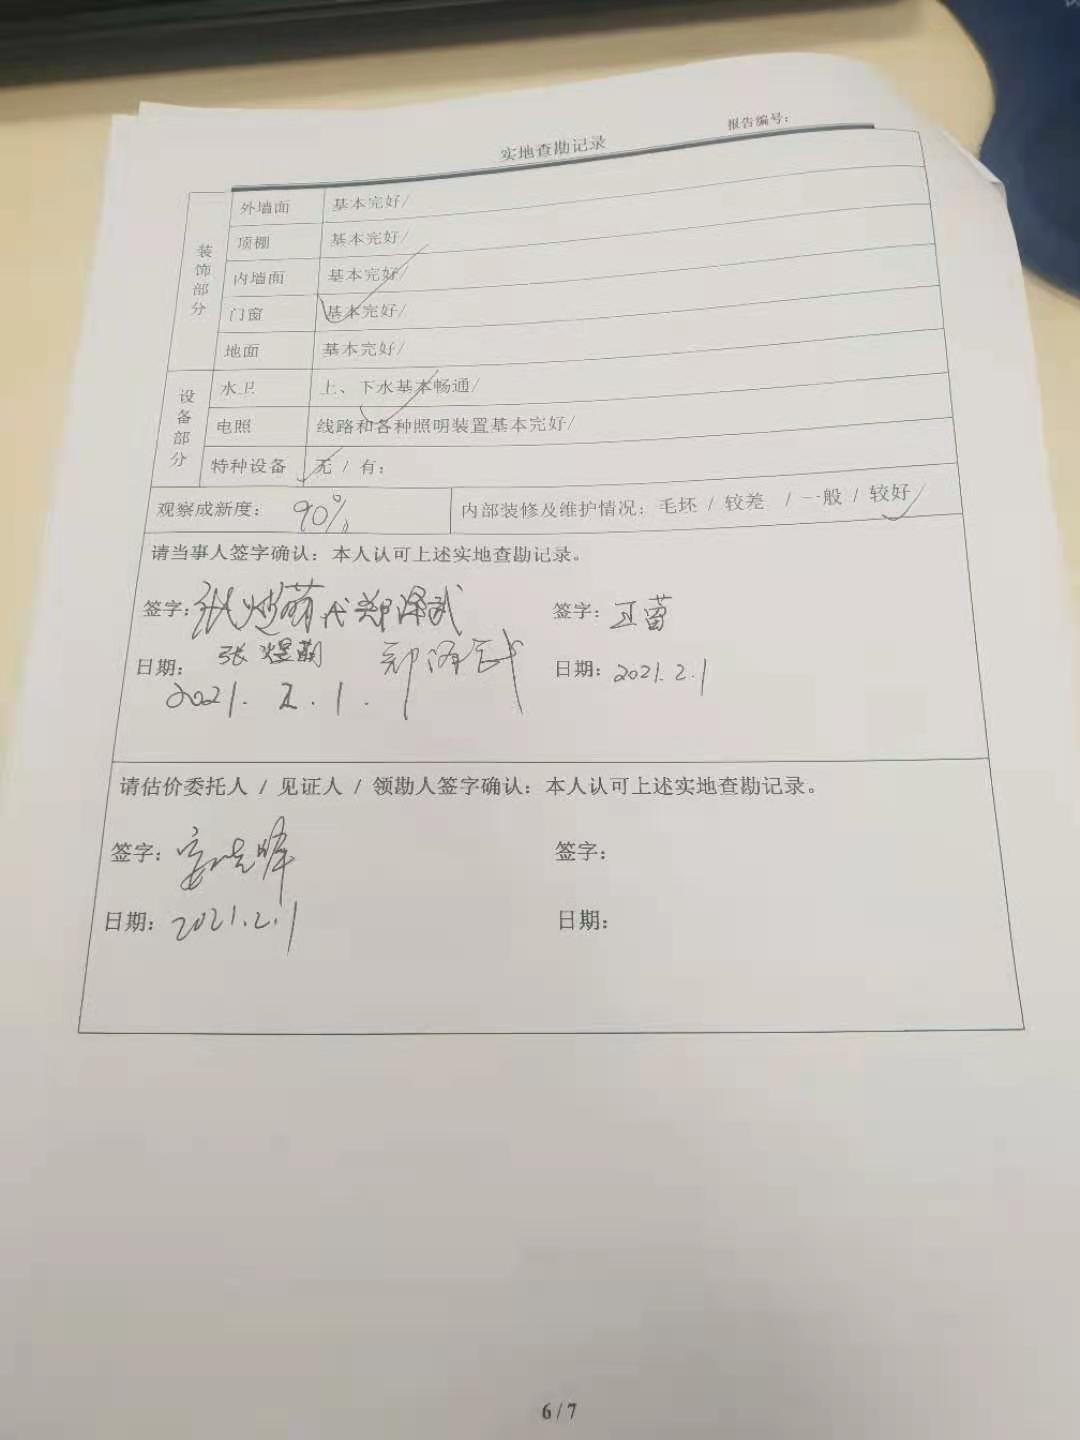 报告编号：
实地查勘记录
装饰部分
外墙面 基本完好/
顶棚 基本完好/
内墙面 基本完好/
门窗 基本完好/
地面 基本完好/
设备部分
水卫 上、下水基本畅通/
电照 线路和各种照明装置基本完好/
特种设备 无 / 有：
观察成新度： 90% 内部装修及维护情况：毛坯 / 较差 / 一般 / 较好/
请当事人签字确认：本人认可上述实地查勘记录。
签字：张煜萌代郑泽武 签字：王蕾
张煜萌 郑泽武
日期：2021.2.1. 日期：2021.2.1
请估价委托人 / 见证人 / 领勘人签字确认：本人认可上述实地查勘记录。
签字： 签字：
日期：2021.2.1 日期：
6 / 7